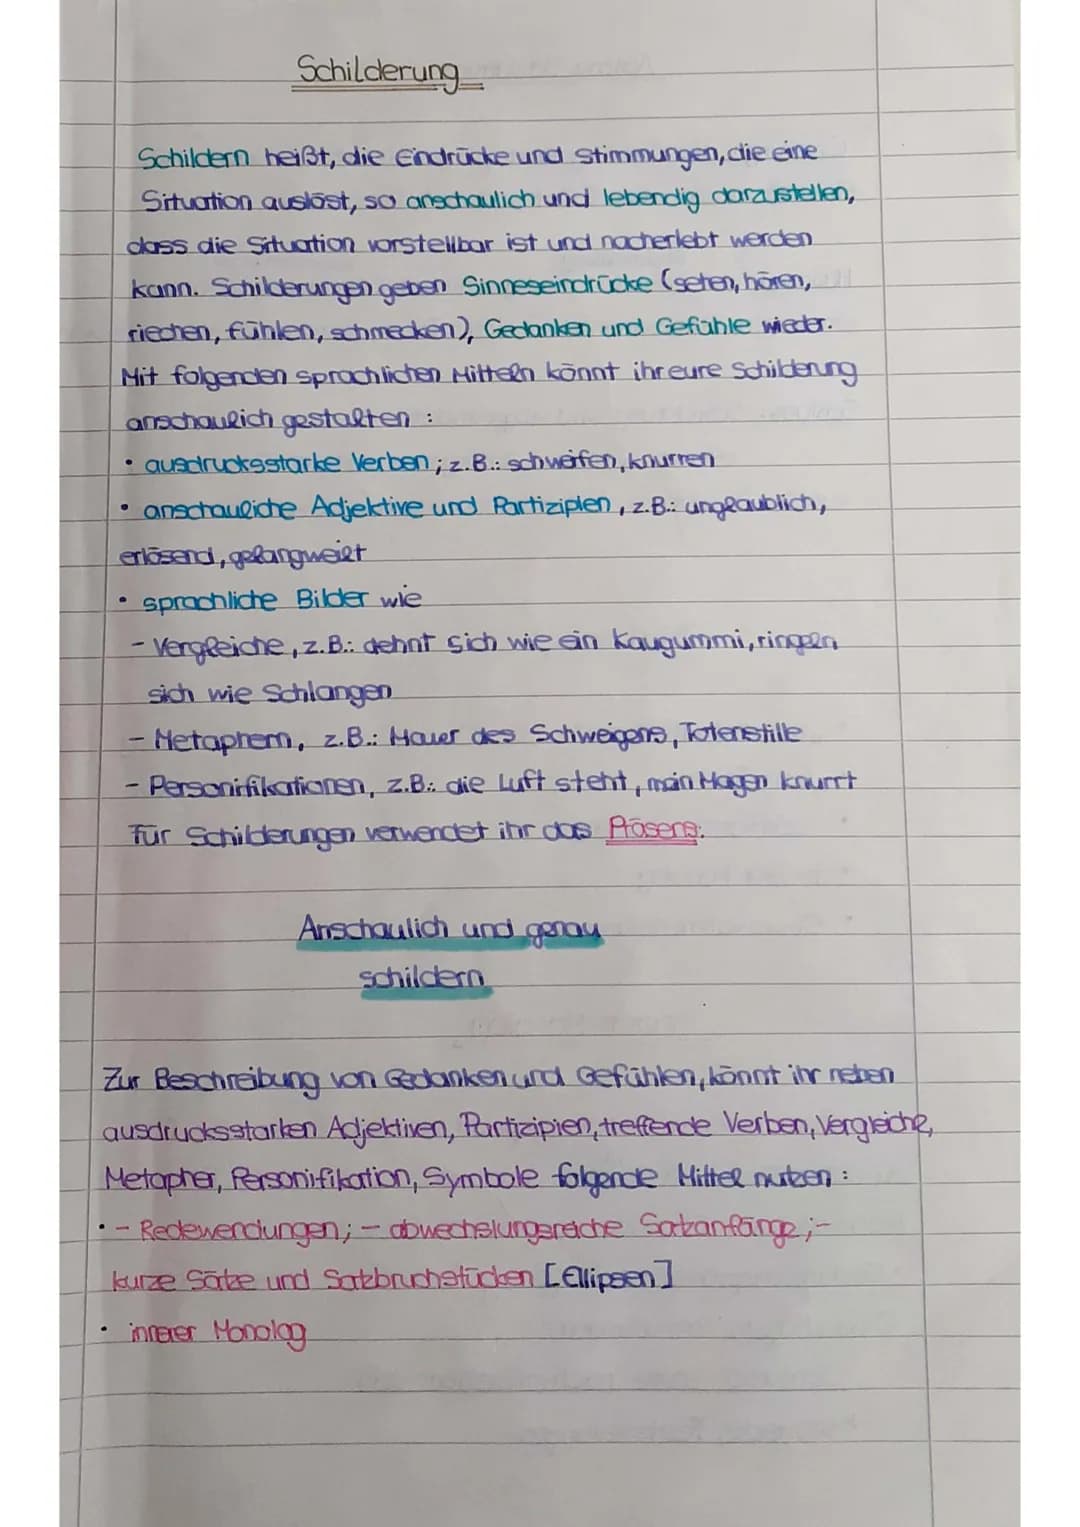 Schilderung
Schildern heißt, die Eindrücke und Stimmungen, die eine
Situation auslöst, so anschaulich und lebendig darzustellen,
dass die Situation vorstellbar ist und nacherlebt werden
kann. Schilderungen geben Sinneseindrücke (sehen, hören,
riechen, fühlen, schmecken), Gedanken und Gefühle wieder.
Mit folgenden sprachlichen Mitteln könnt ihr eure Schilderung
anschaulich gestalten :
• ausdrucksstarke Verben ; z.B.: schweifen, knurren
• anschauliche Adjektive und Partizipien, z.B.: unglaublich,
erlösend, gelangweilt
• sprachliche Bilder wie
- Vergleiche, z.B.: dehnt sich wie ein Kaugummi, ringeln
sich wie Schlangen
- Metaphern, z.B.: Mauer des Schweigens, Totenstille
- Personifikationen, z.B.: die Luft steht, mein Magen knurrt
Für Schilderungen verwendet ihr das Präsens.
Anschaulich und genau
schildern
Zur Beschreibung von Gedanken und Gefühlen, könnt ihr neben
ausdrucksstarken Adjektiven, Partizipien, treffende Verben, Vergleiche,
Metapher, Personifikation, Symbole folgende Mittel nutzen :
• - Redewendungen; - abwechslungsreiche Satzanfänge ;-
kurze Sätze und Satzbruchstücken [Ellipsen]
• innerer Monolog